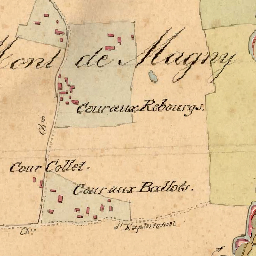 Mont de Magny
Cour aux Rebourgs.
Ch.ⁿ
Cour Collet.
Cour aux Ballots.
Ch.ⁿ